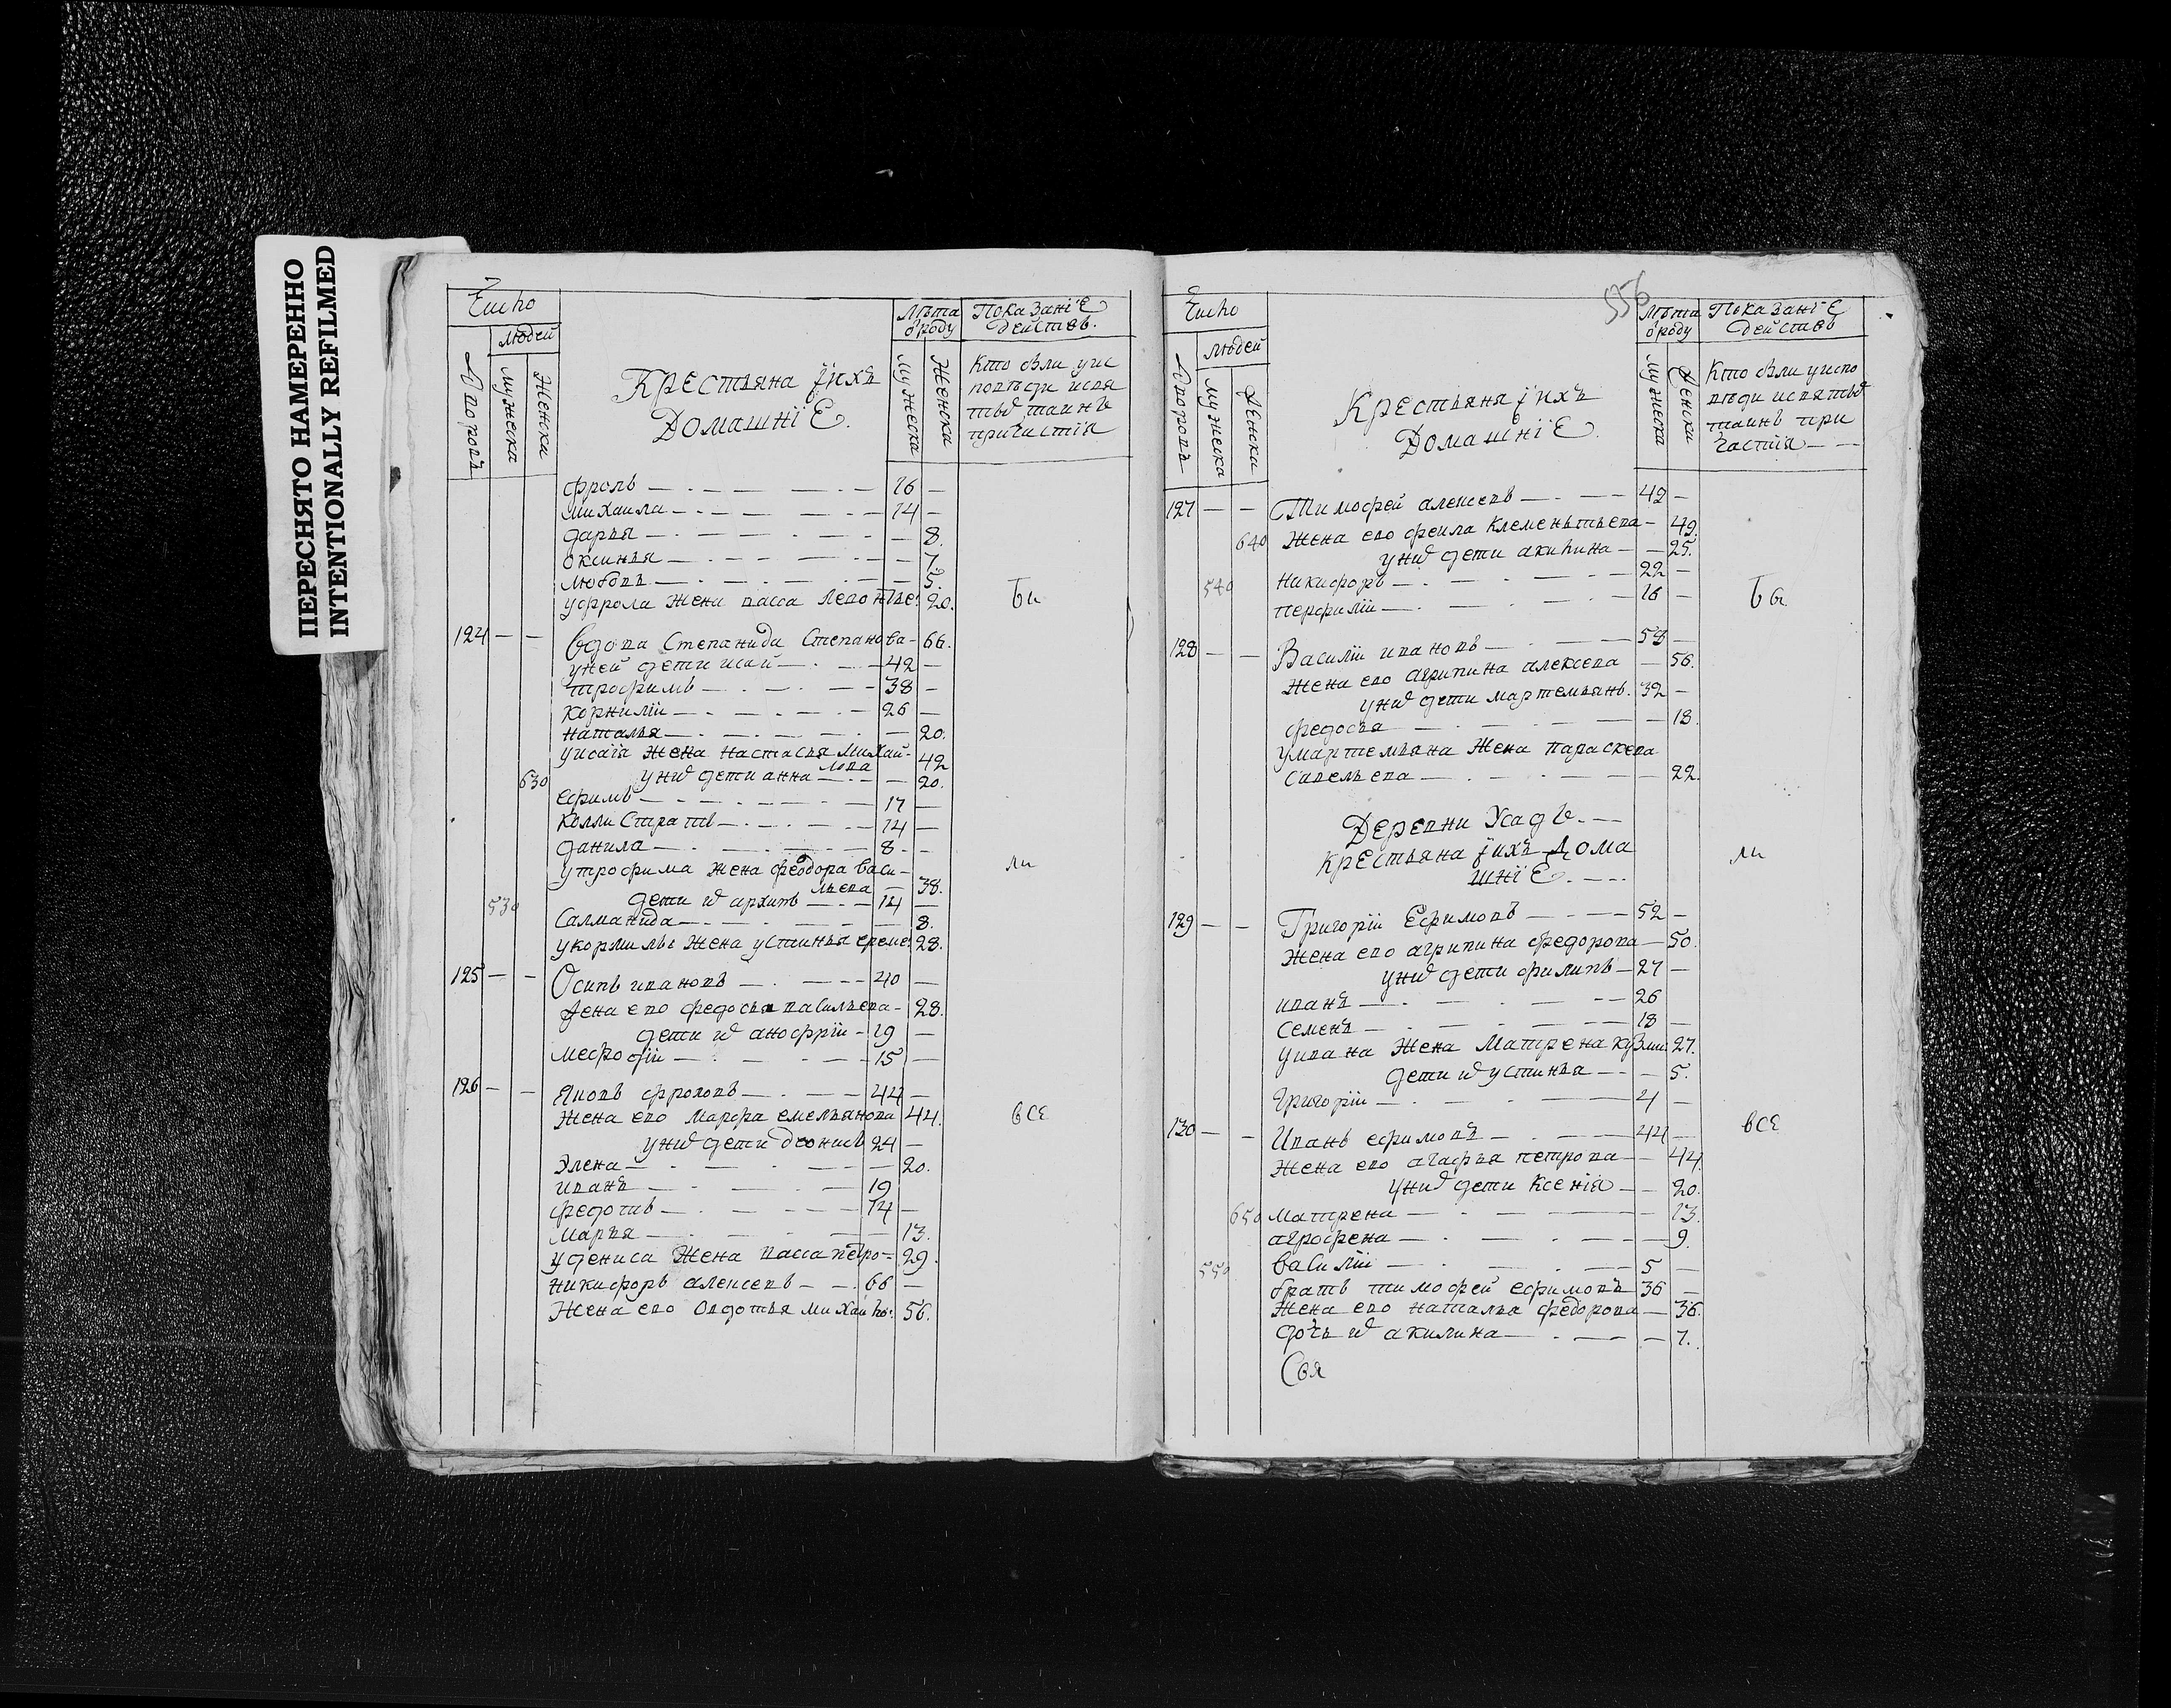 ПЕРЕСНЯТО НАМЕРЕННО
INTENTIONALLY REFILMED
Число
людей
Дворовъ
мужеска
Женски
Крестьяна ӏихъ
Домашнiе.
Лѣта
ѿроду
мужеска
Женски
Показанiе
действъ.
Кто были уис
поведи исвя
тыѿ таинъ
причистiя
фролъ — 16 —
михаила — 14 —
дарья — 8.
оксинья — 7.
любовь — 5.
уфрола жена васса Левонтье: 20.
бы
124 — — Вдова Степанида Степанова — 66.
уней дети исай — 42 —
трофимъ — 38 —
корнилiи — 26 —
наталья — 20.
уисаiя жена настасья михай-
лова 42
630 униѿ дети анна — 20.
ефимъ — 17 —
коллистратъ — 14 —
данила — 8 —
утрофима жена феодора васи-
льева — 38.
ли
530 дети иѿ архипъ — 14 —
Саламанида — 8.
укорнилы жена устинья ереме: 28.
125 — — Осипъ ивановъ — 40 —
жена ево федосья васильева — 28.
дети иѿ анофрiи — 19 —
мефодiи — 15 —
126 — — Яковъ фроловъ — 44 —
жена ево марфа емельянова 44.
все
униѿ дети дионисъ 24 —
Элена — 20.
иванъ — 19
федотъ — 14 —
марья — 13.
удениса жена васса петро — 29.
никифоръ алексевъ — 66 —
Жена ево Овдотья михаило: 56.
556
Число
людей
Дворовъ
мужеска
Женски
Крестьяня ӏихъ
Домашнiе.
Лѣта
ѿроду
мужеска
Женски
Показанiе
действъ
Кто были уиспо
веди исвятыѿ
таинъ при
частiя —
127 — — Тимофей алексевъ — 42 —
640 Жена ево феила Клеменьтьева — 49.
униѿ дети акилина — 25.
540 никифоръ — 22 —
перфилiи — 16 —
бы
128 — — Василiи ивановъ — 58 —
Жена ево агрипина алексева — 56.
униѿ дети мартемьянъ. 32 —
федосья — 18.
умартемьяна жена параскева
савельева — 22.
Деревни Усадъ. —
Крестьяна ӏихъ Дома
шнiе. —
ли
129 — — Григорiи Ефимовъ — 52 —
Жена ево агрипина федорова — 50.
униѿ дети филипъ — 27 —
иванъ — 26
семенъ — 18 —
уивана жена матрена кузми: 27.
дети иѿ устинья — 5.
Григорiи — 4 —
130 — — Иванъ ефимовъ — 44 —
все
жена ево агафья петрова — 44
униѿ дети ксенiя — 20.
650 матрена — 13.
агрофена — 9.
550 василiи — 5 —
братъ тимофей ефимовъ 36 —
жена ево наталья федорова — 36.
дочь иѿ акилина — 7.
Своя